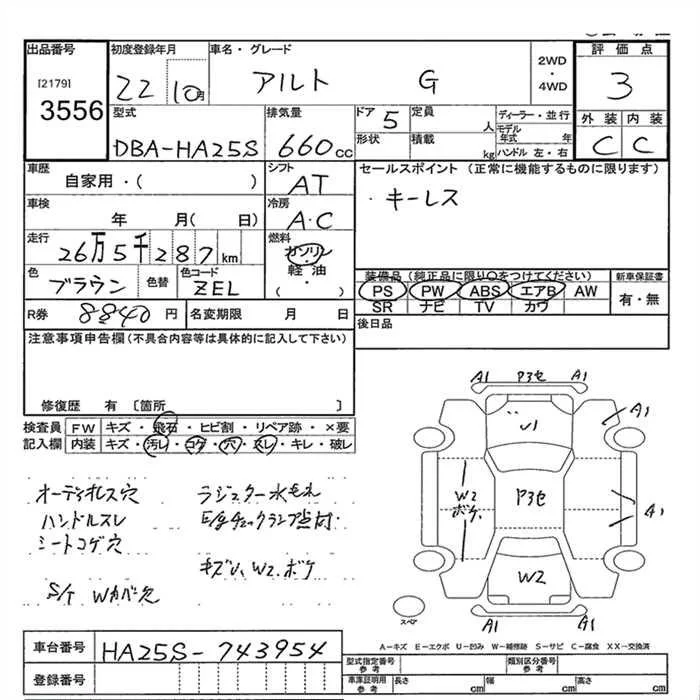 出品番号 初度登録年月 車名・グレード 2WD・4WD 評価点
[2179] 3556 22 10月 アルト G 3
型式 排気量 ドア 5 定員 人 ディーラー・並行 外装 内装
DBA-HA25S 660cc 形状 積載 kg モデル年式 年 ハンドル 左・右 C C
車歴 シフト セールスポイント (正常に機能するものに限ります)
自家用・( ) AT ・キーレス
車検 冷房
年 月( 日) A・C
走行 燃料
26万5千287km ガソリン・軽油・( )
色 色替 色コード 装備品 (純正品に限り○をつけてください) 新車保証書
ブラウン ZEL PS PW ABS エアB AW 有・無
SR ナビ TV カワ
R券 8840円 名変期限 月 日 後日品
注意事項申告欄(不具合内容等は具体的に記入して下さい)
修復歴 有 〔箇所 〕
検査員 FW キズ・飛石・ヒビ割・リペア跡・×要
記入欄 内装 キズ・汚レ・コゲ・穴・スレ・キレ・破レ
オーディオレス穴 ラジエター水もれ
ハンドルスレ E/gチェックランプ点灯・
シートコゲ穴
キズU、W2、ボケ
S/T Wカバー欠
A1 P3セ A1
U1 A1
W2 ボケ P3セ A1
W2
スペア A1 A1
A-キズ E-エクボ U-凹み W-補修跡 S-サビ C-腐食 XX-交換済
車台番号 HA25S-743954 型式指定番号 参考 類別区分番号 参考
登録番号 車庫証明用 参考 長さ cm 幅 cm 高さ cm